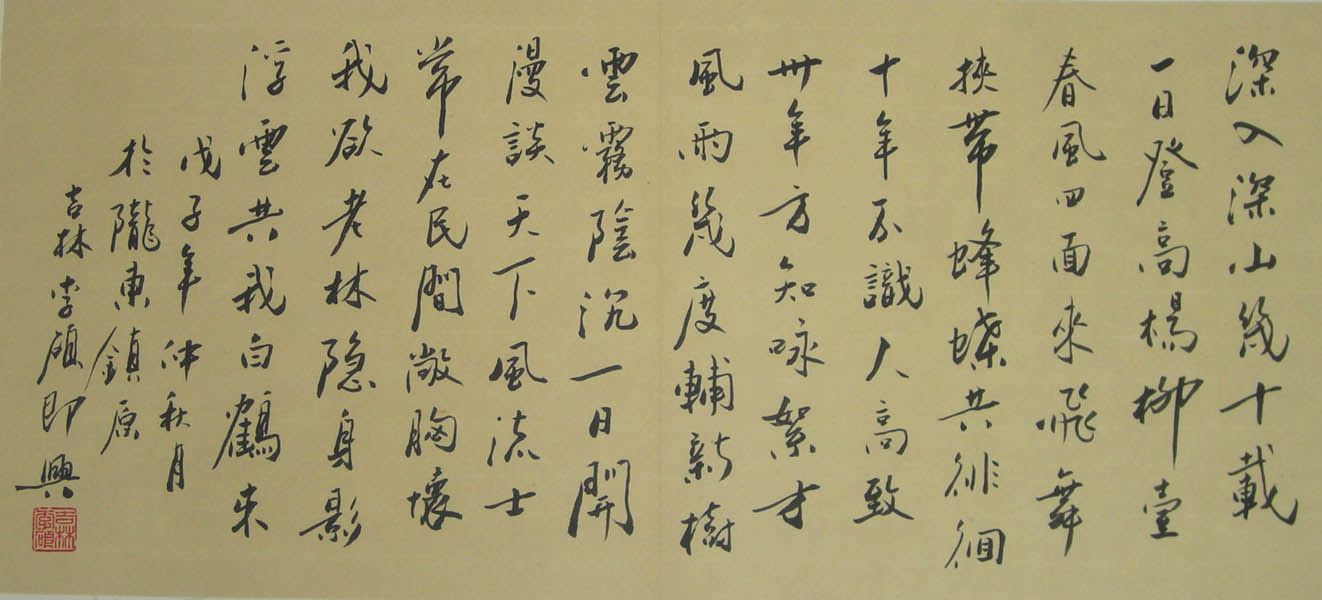 深入深山幾十載
一日登高楊柳臺
春風四面來飛舞
挾帶蜂蝶共徘徊
十年不識人高致
卅年方知咏絮才
風雨幾度輔新樹
雲霧陰沉一日開
漫談天下風流士
常在民間敞胸懷
我欲老林隐身影
浮雲共我白鶴来
戊子年仲秋月
於隴東鎮原
吉林李碩即興
吉林
李碩